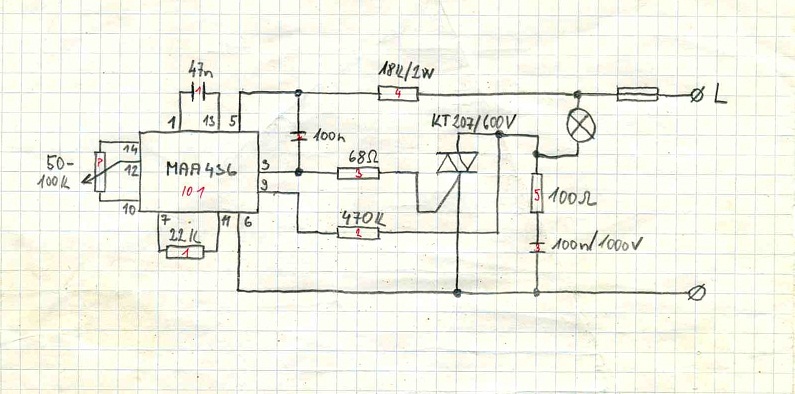 47n
1
18k/2W
4
L
1
13
5
KT207/600V
100n
14
12
10
P
50-
100k
MAA436
IO1
3
9
68Ω
3
470k
2
5
100Ω
100n/1000V
3
7
11
6
22k
1